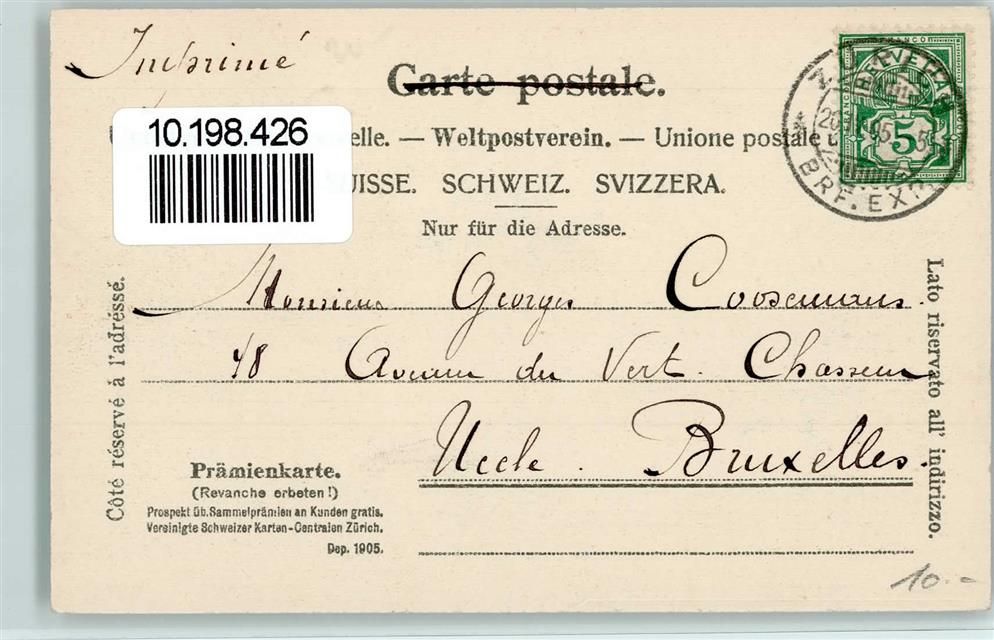 Imprimé
Carte postale.
10.198.426
elle. — Weltpostverein. — Unione postale
SUISSE. SCHWEIZ. SVIZZERA.
Nur für die Adresse.
FRANCO
HELVETIA
5
BRF. EXP.
Côté réservé à l'adréssé.
Lato riservato all' indirizzo.
Monsieur Georges Coosemans.
48 Avenue du Vert. Chasseur
Uccle. Bruxelles.
Prämienkarte.
(Revanche erbeten!)
Prospekt üb. Sammelprämien an Kunden gratis.
Vereinigte Schweizer Karten-Centralen Zürich.
Dep. 1905.
10.-